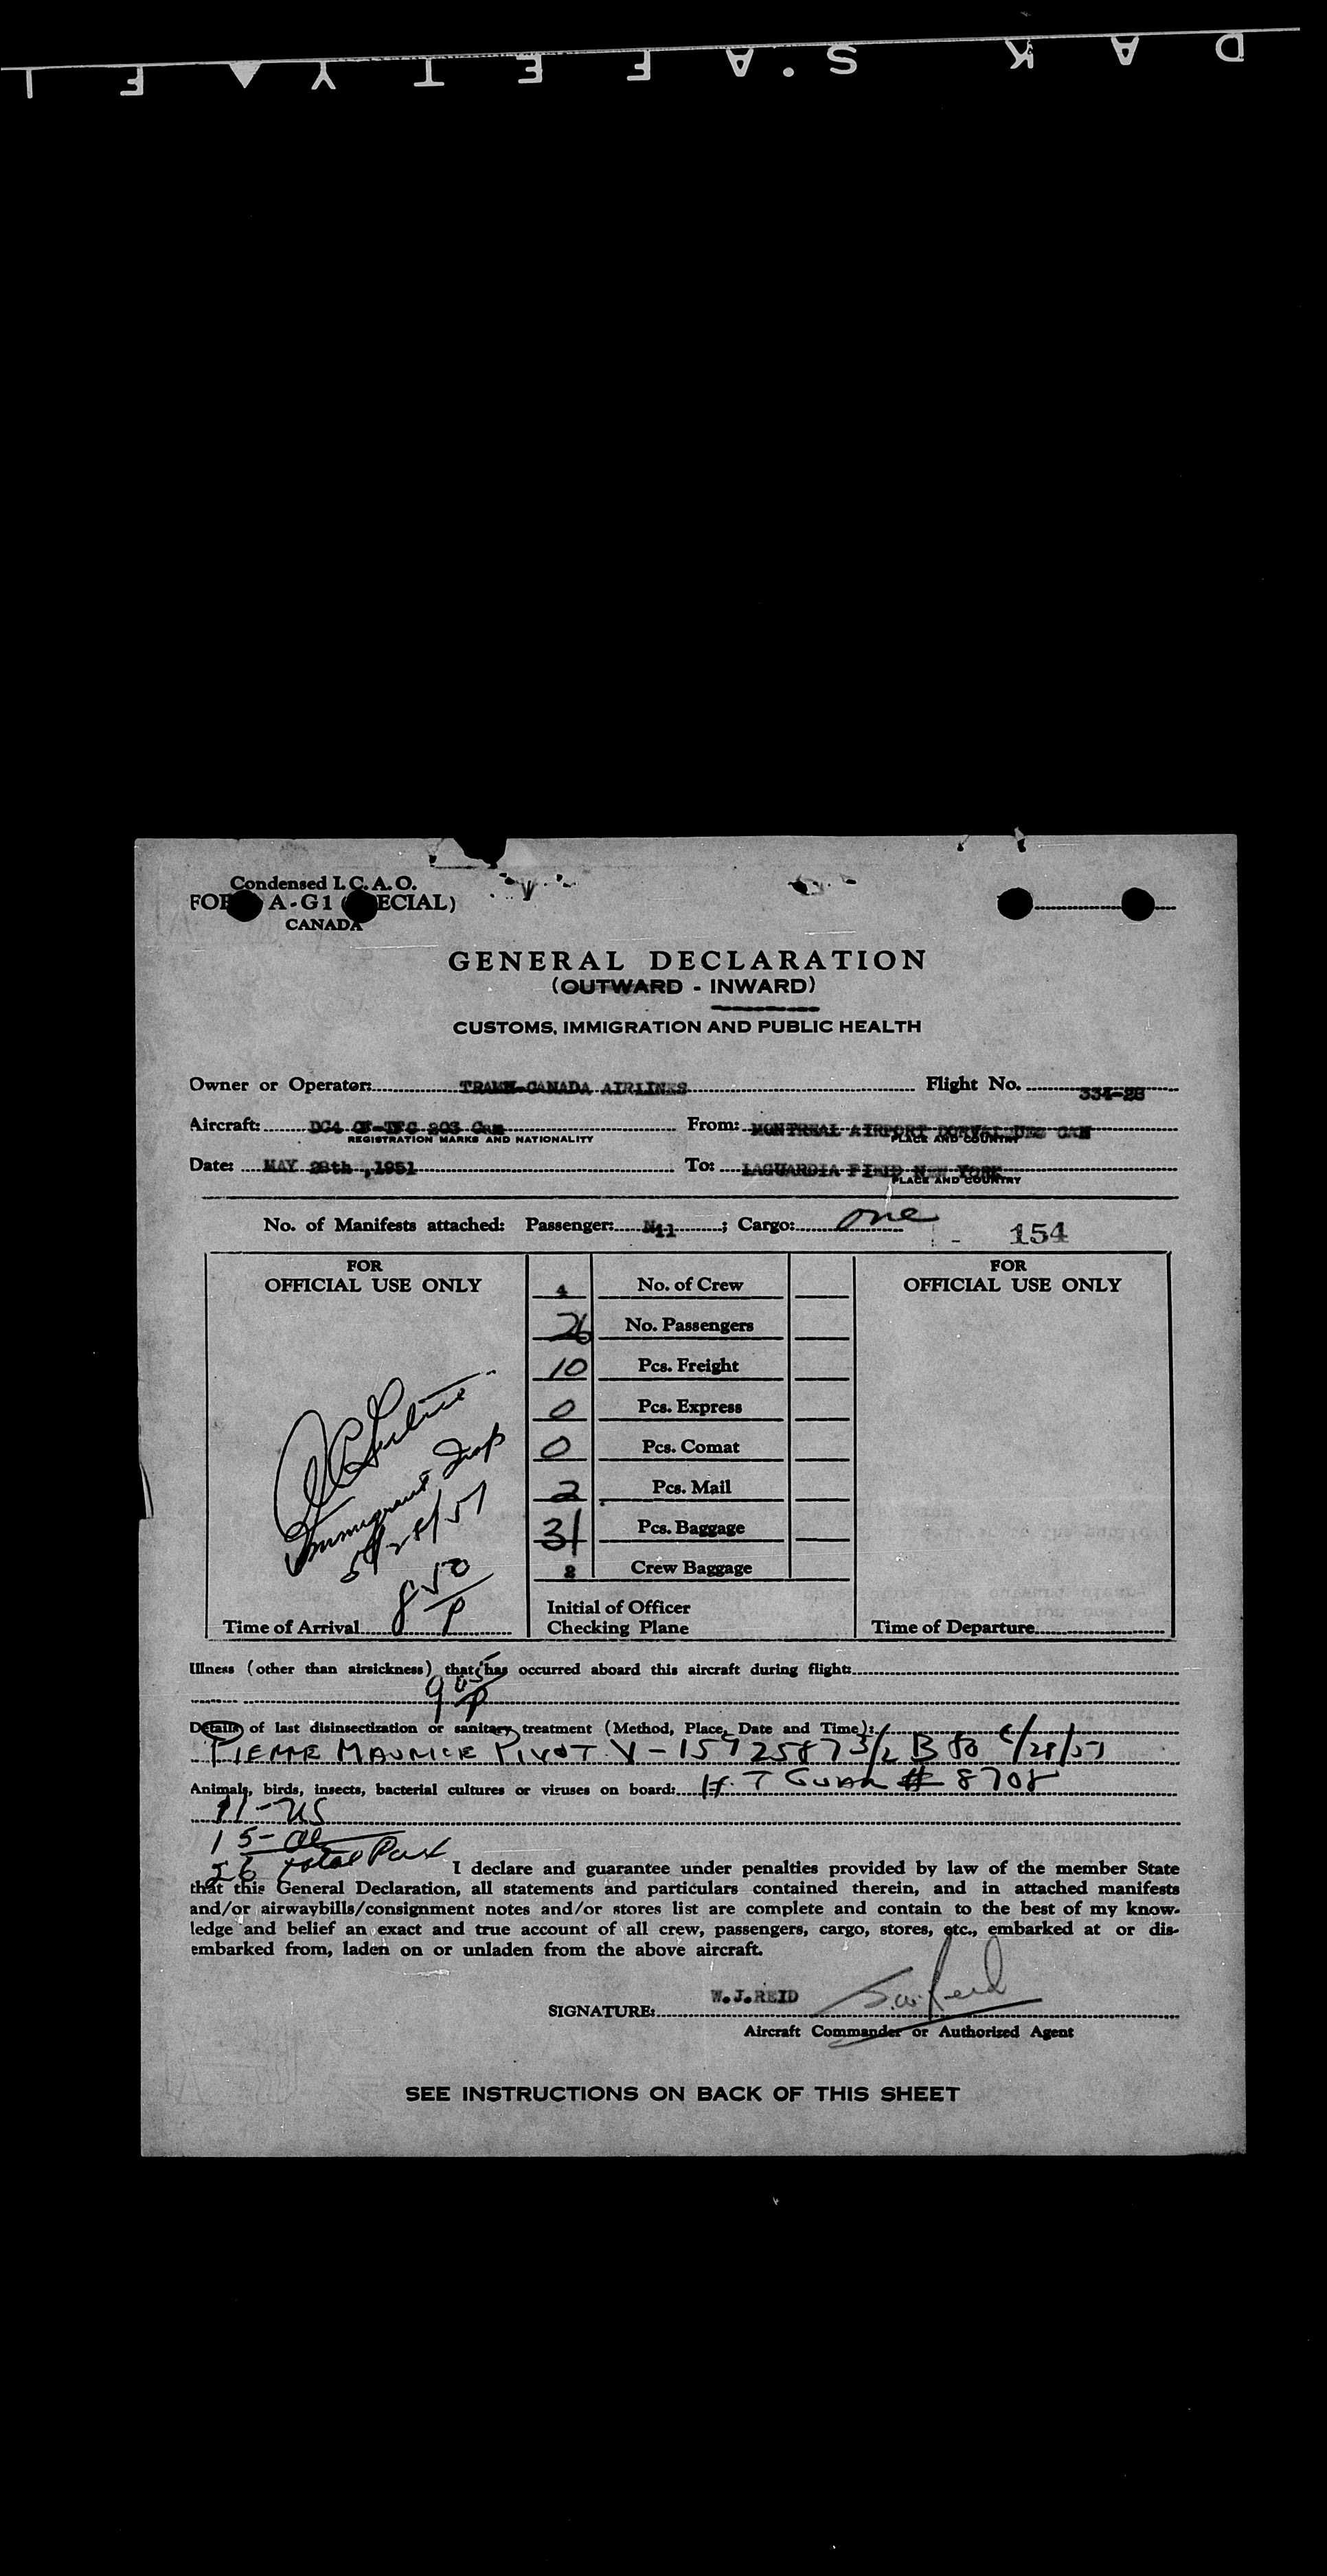 DAK SAFETY ▲ FI
Condensed I. C. A. O.
FOR A - G 1 (ECIAL)
CANADA
GENERAL DECLARATION
(OUTWARD - INWARD)
CUSTOMS, IMMIGRATION AND PUBLIC HEALTH
Owner or Operator: TRANS-CANADA AIRLINES Flight No. 334-28
Aircraft: DC4 CF-TFC 203 Can From: MONTREAL AIRPORT DORVAL QUE CAN
REGISTRATION MARKS AND NATIONALITY PLACE AND COUNTRY
Date: MAY 28th ,1951 To: LAGUARDIA FIELD NEW YORK
PLACE AND COUNTRY
No. of Manifests attached: Passenger: Nil ; Cargo: one
154
FOR
OFFICIAL USE ONLY
4 No. of Crew
26 No. Passengers
10 Pcs. Freight
0 Pcs. Express
0 Pcs. Comat
2 Pcs. Mail
31 Pcs. Baggage
2 Crew Baggage
Initial of Officer
Checking Plane
Immigrant Insp
5/28/51
Time of Arrival 850 P
FOR
OFFICIAL USE ONLY
Time of Departure
Illness (other than airsickness) that has occurred aboard this aircraft during flight:
905 P
Details of last disinsectization or sanitary treatment (Method, Place, Date and Time):
PIERRE MAURICE PIVOT V-1592587 3/2 B to 6/28/51
Animals, birds, insects, bacterial cultures or viruses on board: H. T # 8708
11-US
15-al
26 total Pass
I declare and guarantee under penalties provided by law of the member State
that this General Declaration, all statements and particulars contained therein, and in attached manifests
and/or airwaybills/consignment notes and/or stores list are complete and contain to the best of my know-
ledge and belief an exact and true account of all crew, passengers, cargo, stores, etc., embarked at or dis-
embarked from, laden on or unladen from the above aircraft.
W.J.REID
SIGNATURE:
Aircraft Commander or Authorized Agent
SEE INSTRUCTIONS ON BACK OF THIS SHEET